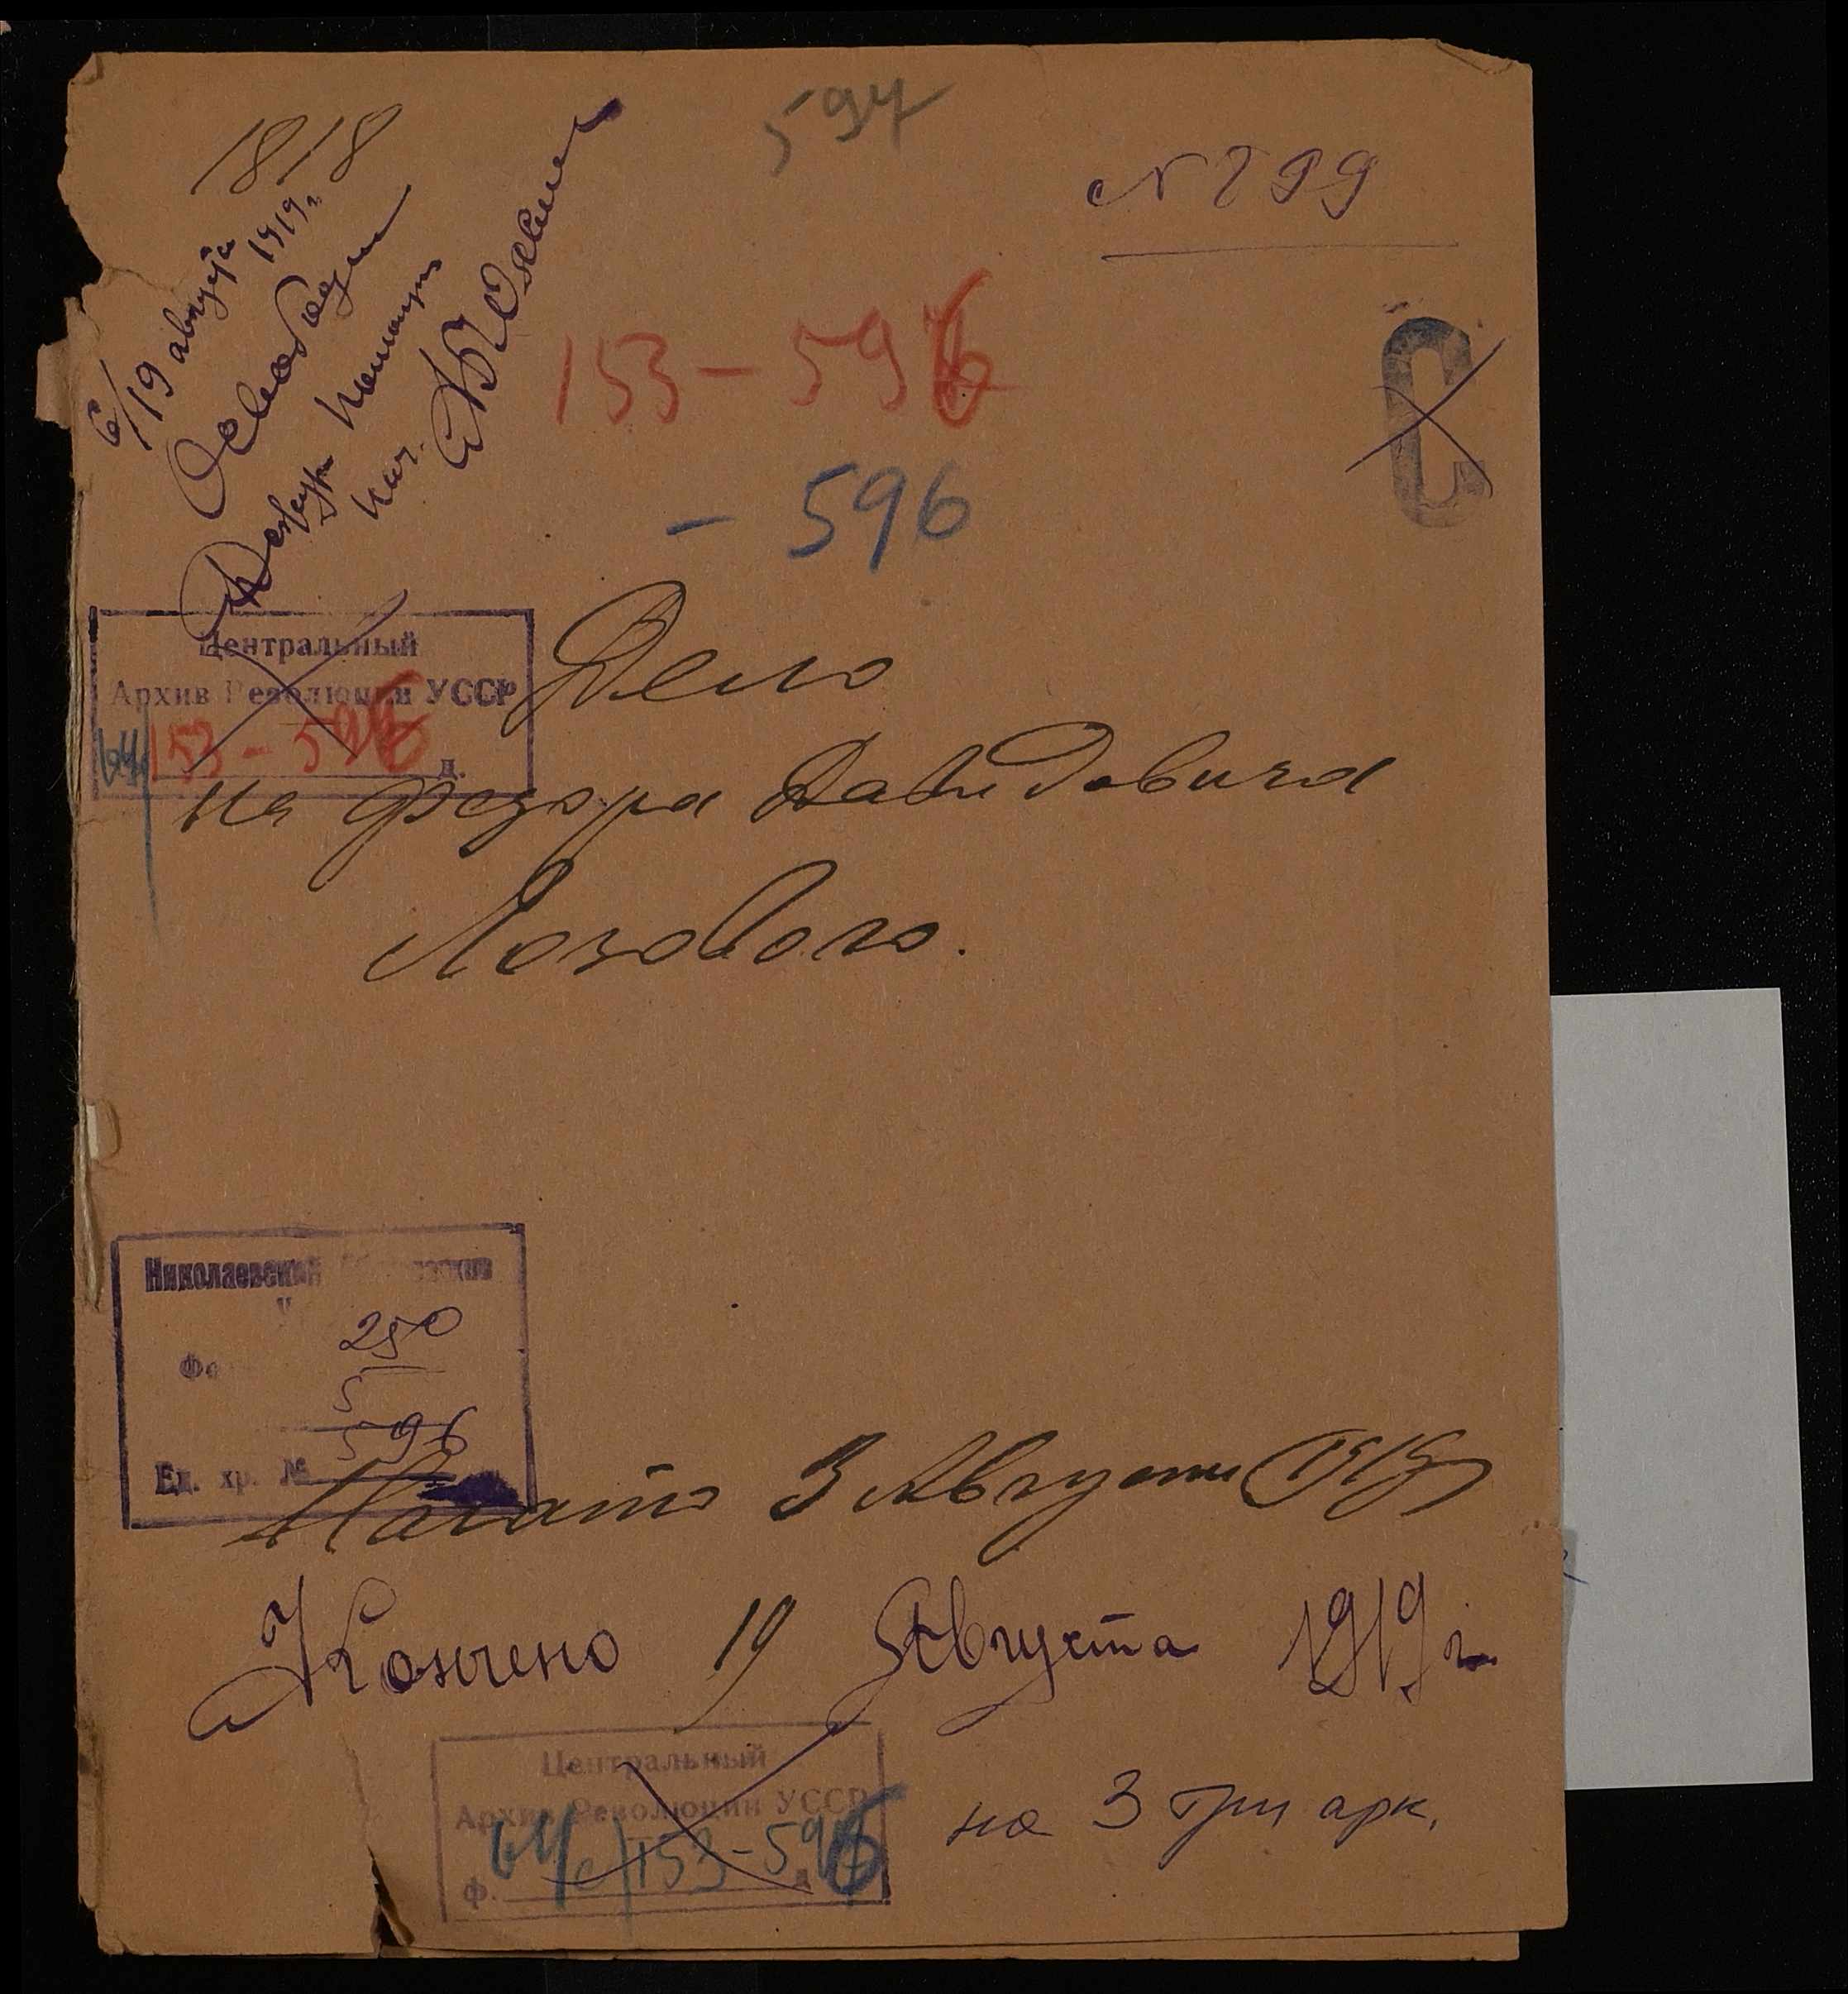 597
1818
№ 799
6/19 августа
1919 г.
Освободить
Нач.
153-596
- 596
Центральный
Архив Революции УССР
153-596
д.
Дело
на Федора Давидовича
Лозового.
Николаевский
250
5
596
Ед. хр. №
Начато 3 Августа 1919
Кончено 19 Августа 1919 г.
Центральный
Архив Революции УССР
ф. 153-596 д
на 3 три арк.